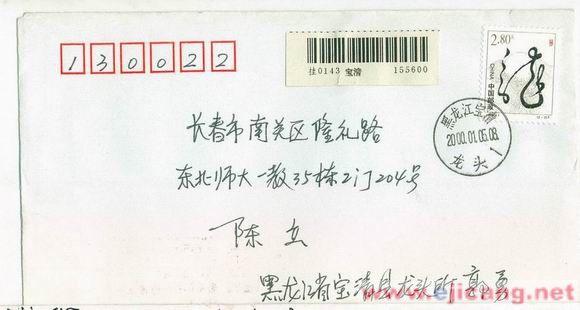 130022
挂0143 宝清 155600
2.80元
CHINA 中国邮政
龙
黑龙江宝清
2000.01.05.08
龙头 1
长春市南关区隆礼路
东北师大一教35栋2门204号
陈立
黑龙江省宝清县龙头所 郭勇
www.ejicang.net